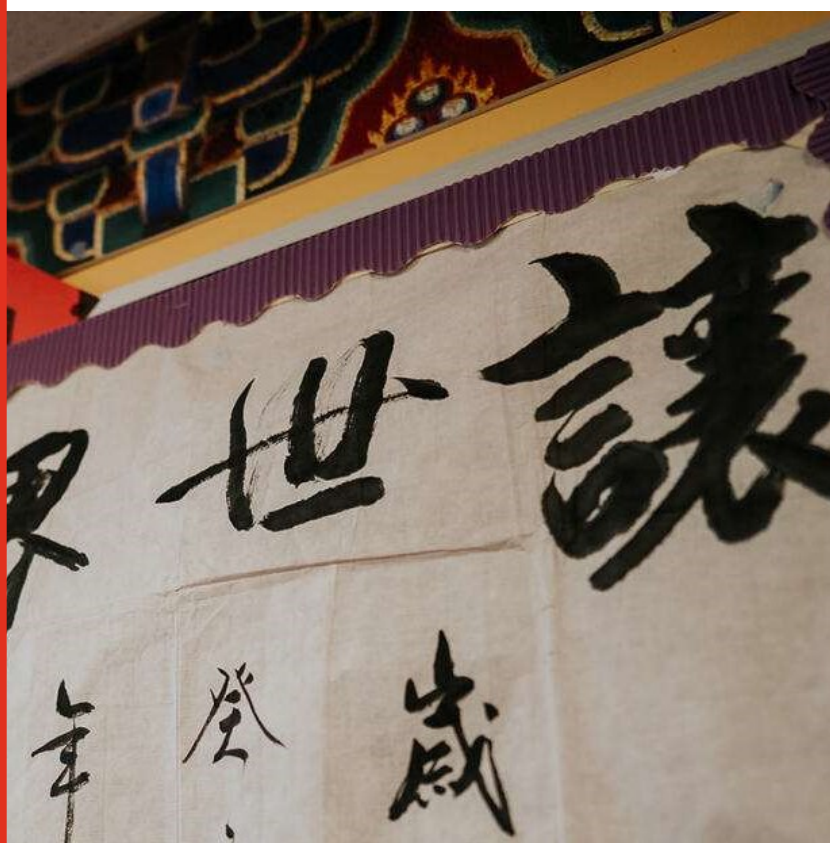 讓世界
歲癸年